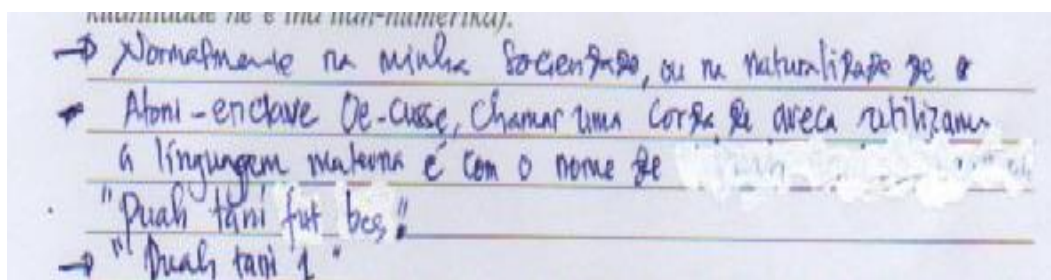 kuantidade ne'e iha nain-numerika).
→ Normalmente na minha Sociendade, ou na naturalidade de o
Atoni-enclave Oe-cusse, Chamar uma Corda de areca utilizamos
a língungem materna é com o nome de
"Puah tani fut bes"
→ "Puah tani 1"